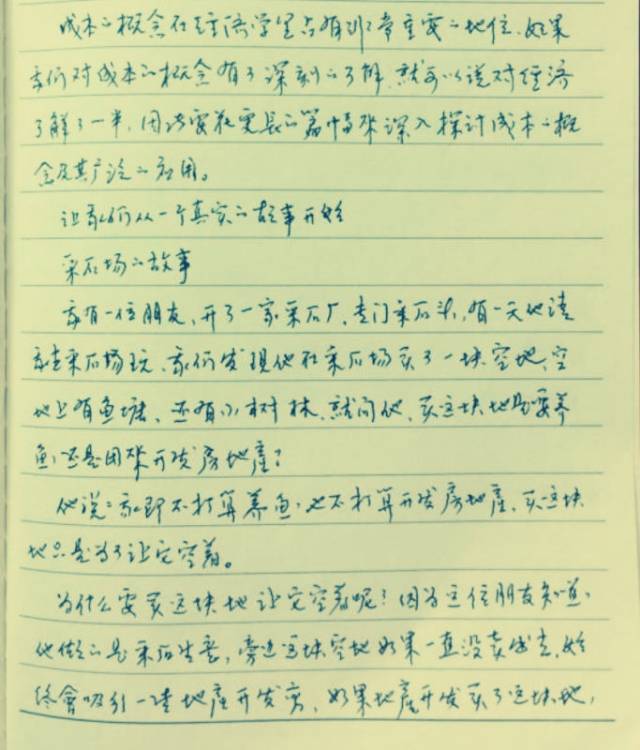 成本的概念在经济学里占有非常重要的地位.如果
我们对成本的概念有了深刻的了解,就可以说对经济
了解了一半,因此要花更长的篇幅来深入探讨成本的概
念及其广泛的应用。
让我们从一个真实的故事开始
采石场的故事
我有一位朋友、开了一家采石厂、专门采石头,有一天他请
我去采石场玩、我们发现他在采石场买了一块空地、空
地上有鱼塘、还有小树林、就问他、买这块地是要养
鱼,还是用来开发房地产?
他说:我即不打算养鱼,也不打算开发房地产、买这块
地只是为了让它空着。
为什么要买这块地让它空着呢?因为这位朋友知道,
他做的是采石生意,旁边这块空地如果一直没卖出去,始
终会吸引一堆地产开发商、如果地产开发买了这块地,